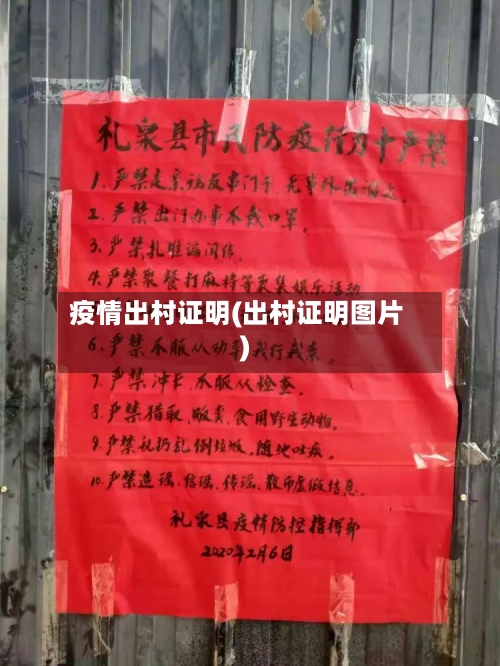 礼泉县市民防疫行为十严禁
1. 严禁走亲访友串门子 无事外出溜达.
2. 严禁出门办事不戴口罩.
3. 严禁扎堆谝闲传.
4. 严禁聚餐打麻将等聚集娱乐活动
疫情出村证明(出村证明图片
)
6. 严禁不服从劝导我行我素.
7. 严禁冲卡、不服从检查.
8. 严禁猎取、贩卖、食用野生动物.
9. 严禁乱扔乱倒垃圾,随地吐痰.
10. 严禁造谣、信谣、传谣、散布虚假信息.
礼泉县疫情防控指挥部
2020年2月6日